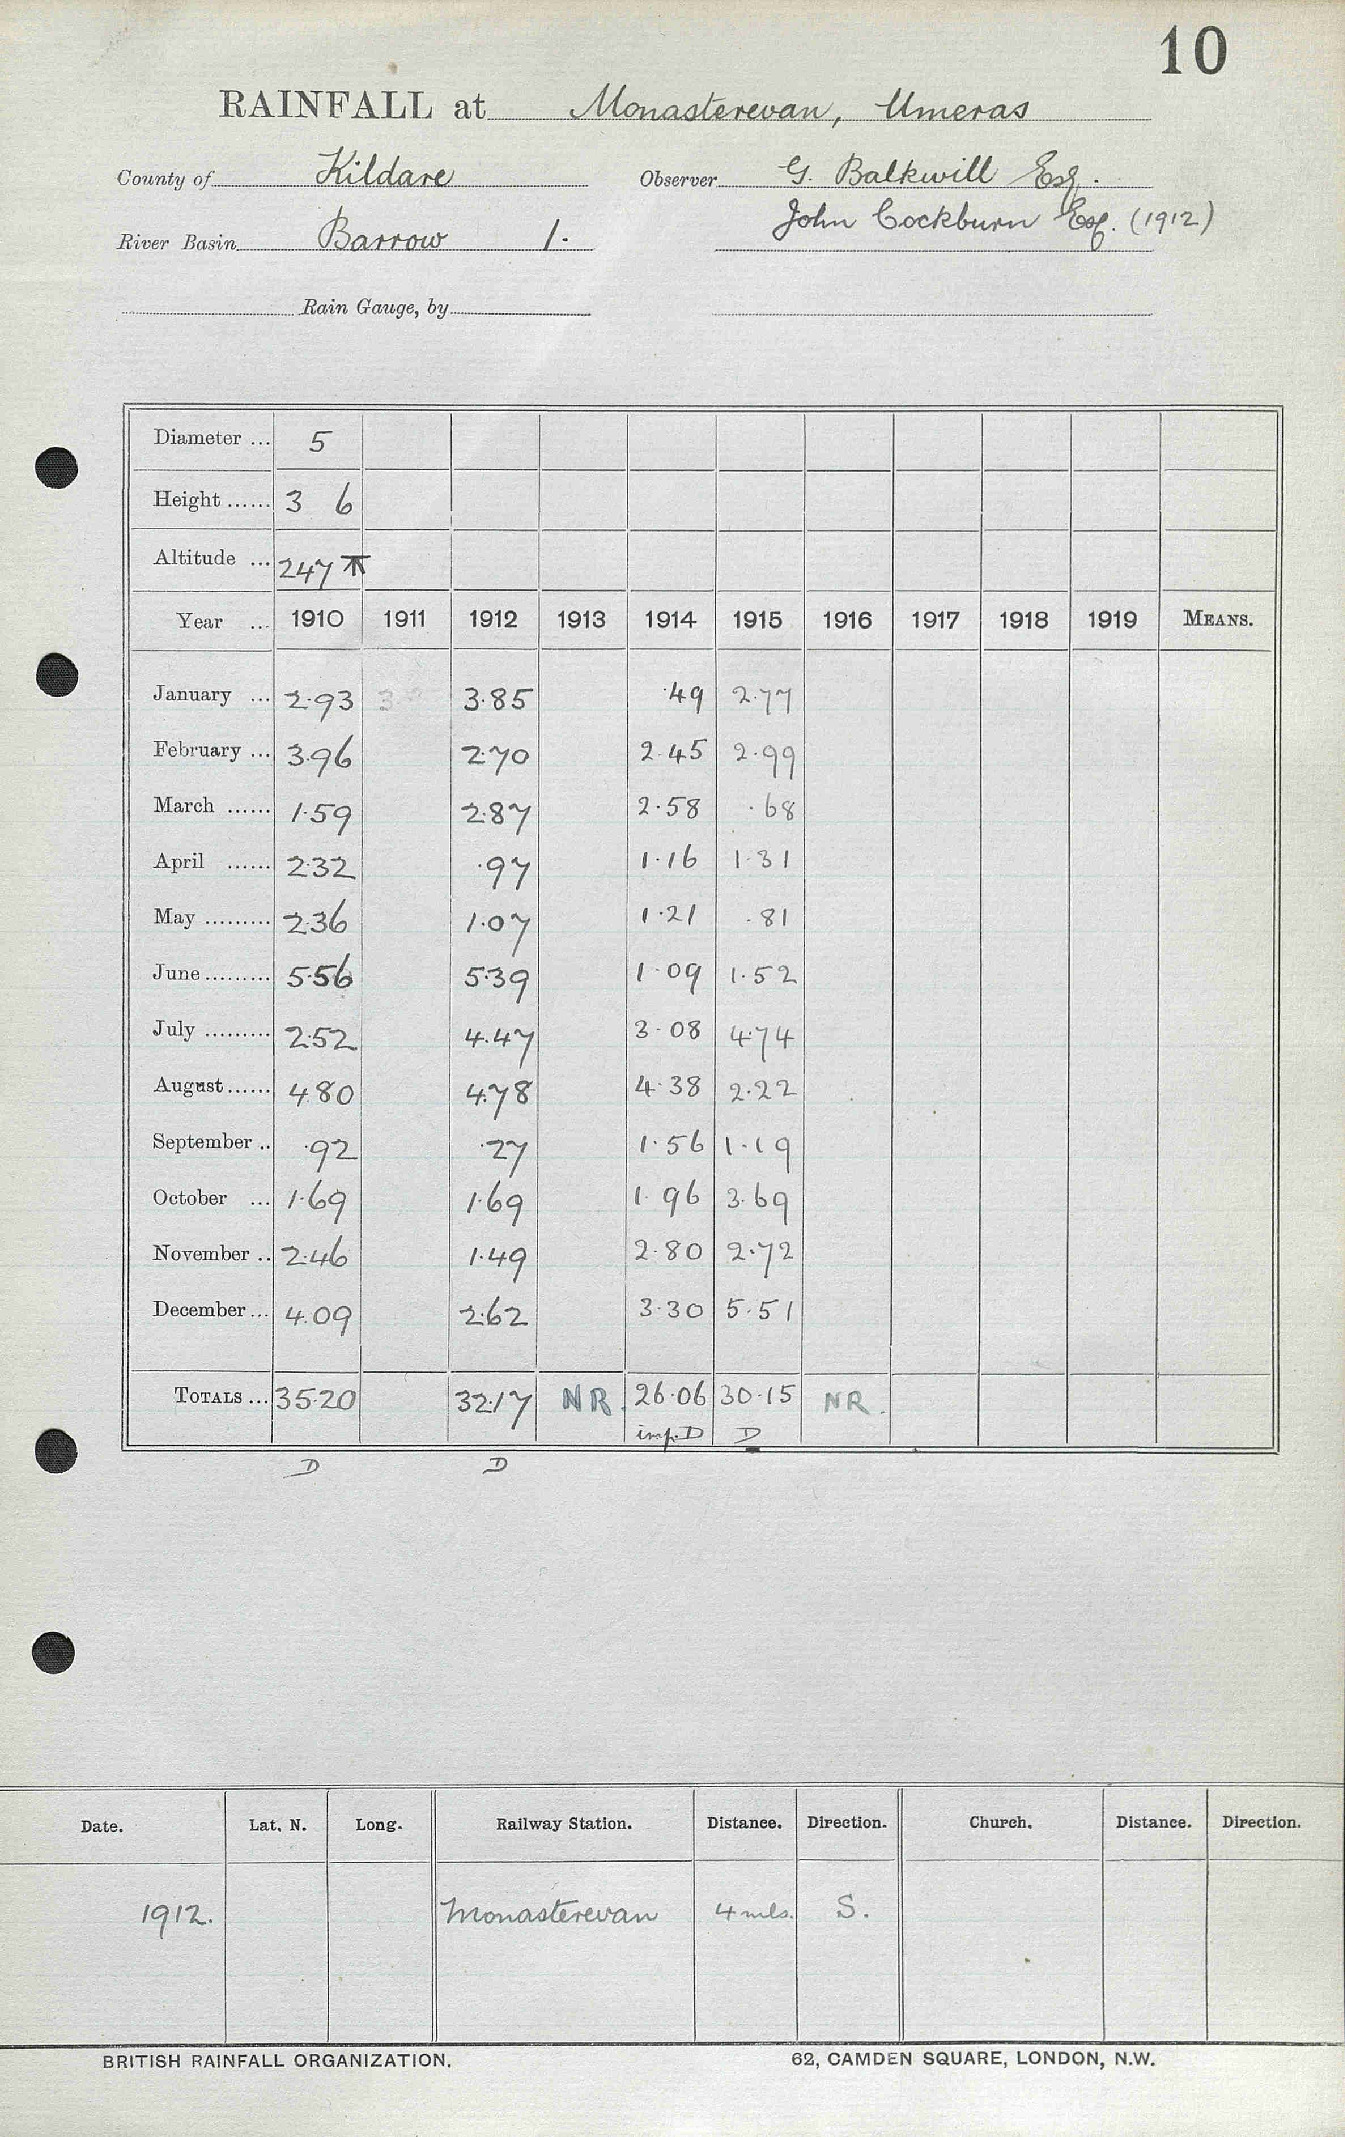 10
RAINFALL at Monasterevan, Umeras
County of Kildare Observer G. Balkwill Esq.
John Cockburn Esq. (1912)
River Basin Barrow 1.
Rain Gauge, by
Diameter ... 5
Height ...... 3 6
Altitude ... 247
Year ... 1910 1911 1912 1913 1914 1915 1916 1917 1918 1919 MEANS.
January ... 2.93 3 3.85 .49 2.77
February ... 3.96 2.70 2.45 2.99
March ...... 1.59 2.87 2.58 .68
April ...... 2.32 .97 1.16 1.31
May ......... 2.36 1.07 1.21 .81
June ......... 5.56 5.39 1.09 1.52
July ......... 2.52 4.47 3.08 4.74
August ...... 4.80 4.78 4.38 2.22
September .. .92 .27 1.56 1.19
October ... 1.69 1.69 1.96 3.69
November .. 2.46 1.49 2.80 2.72
December ... 4.09 2.62 3.30 5.51
TOTALS ... 35.20 32.17 NR. 26.06 30.15 NR.
imp. D D
D D
Date. Lat. N. Long. Railway Station. Distance. Direction. Church. Distance. Direction.
1912. Monasterevan 4 mls. S.
BRITISH RAINFALL ORGANIZATION. 62, CAMDEN SQUARE, LONDON, N.W.